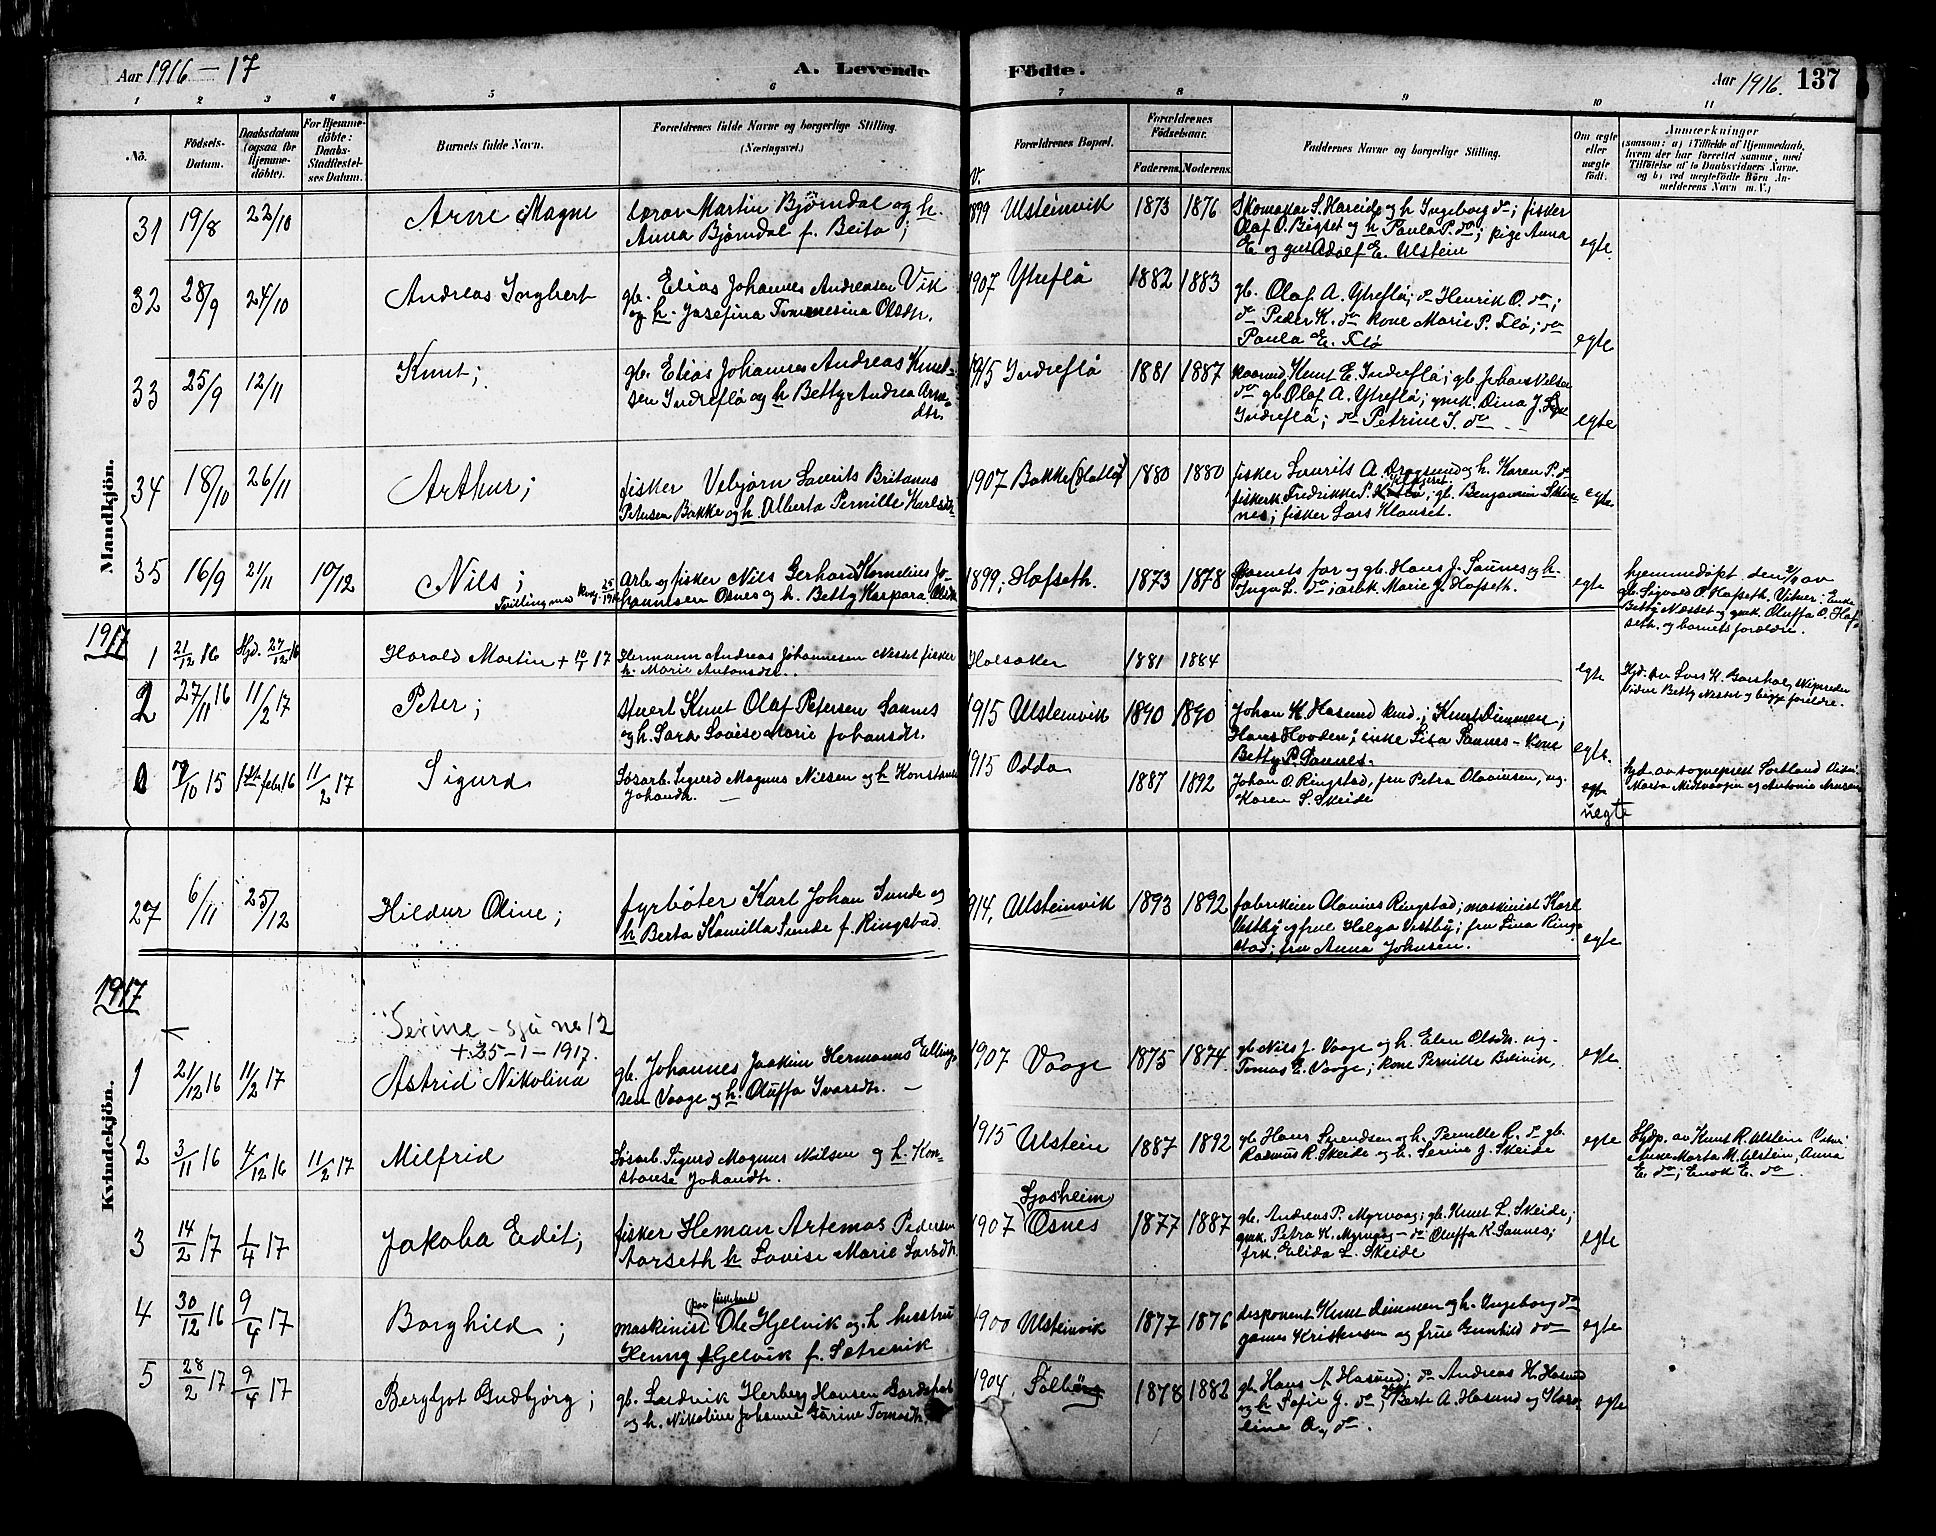 Aar 1916 – 17
A. Levende Födte.
Aar 1916. 137
1 2 3 4 5 6 7 8 9 10 11
No.
Födsels-Datum.
Daabsdatum (ogsaa for Hjemme-döbte).
For Hjemme-döbte: Daabs-Stadfæstel-ses Datum.
Barnets fulde Navn.
Forældrenes fulde Navne og borgerlige Stilling.
(Næringsvei.)
V.
Forældrenes Bopæl.
Forældrenes Födselsaar.
Faderens. Moderens.
Faddernes Navne og borgerlige Stilling.
Om ægte eller uægte født.
Anmærkninger
(saasom: a) i Tilfælde af Hjemmedaab, hvem der har forrettet samme, med Tilföielse af to Daabsvidners Navne, og b) ved uægtefödte Börn An-melderens Navn m. V.)
Mandkjön.
31 19/8 22/10 Arne Magne
lærer Martin Bjørndal og h.
Anna Bjørndal f. Beito;
1899 Ulsteinvik 1873 1876
Skomaker S. Hareide og h Ingeborg do; fisker
Olaf O. Bigset og h Paula P. do; pige Anna
E. og gut Adolf E. Ulstein
egte.
32 28/9 24/10 Andreas Ingbert
gb. Elias Johannes Andreasen Vik
og h. Josefina Tomesina Olsdtr.
1907 Ytreflø 1882 1883
gb. Olaf A. Ytreflø; do Henrik O. do;
do Peder K. do kone Marie P. Flø; do
Paula E. Flø
egte
33 25/9 12/11 Knut;
gb. Elias Johannes Andreas Knut-
sen Indreflø og h Betty Andrea Arne-
dtr.
1915 Indreflø 1881 1887
kaarmd Knut E. Indreflø; gb. Johan Nilsen
do gb Olaf A. Ytreflø; pik. Dina J.
Indreflø; do Petrine S. do
egte
34 18/10 26/11 Arthur;
fisker Vebjørn Laurits Britanus
Petersen Bakke og h. Alberta Pernille Karlsdtr
1907 Bakke (Hatlø) 1880 1880
fisker Laurits A. Dragsund og h. Karen P. do
fiskerk. Fredrikke P. gb. Benjamin Skei-
nes; fisker Lars Klauset.
egte
35 16/9 21/11 10/12 Nils;
Tvilling med Kvg. 25 1916
Arb. og fisker Nils Gerhard Kornelius Jo-
hannesen Osnes og h. Betty Kaspara Olsdtr
1899, Hofseth. 1873 1878
Barnets far og gb. Hans J. Saunes og h.
Inga L. do; arbk Marie J. Hofseth.
egte
hjemmedøpt den 2/11 av
gb. Sigvald O. Hofseth. Vitner: Enke
Betty Næsset og pik. Oluffa O. Hof-
seth. og barnets forældre.
1917
1 21/12 16 Hjd. 27/12 16 Harald Martin + 10/1 17
Hermann Andreas Johannesen Nesset fisker
h. Marie Antonsdtr.
Holsaker 1881 1884
egte
Hjd. av Lars K. Garshol, skipsreder
Vidner Betty Nesset og begge foreldre.
2 27/11 16 11/2 17 Peter;
stuert Knut Olaf Petersen Saunes
og h. Sara Lovise Marie Johansdtr.
1915 Ulsteinvik 1890 1890
Johan K. Hasund knd.; Knut Dimmen;
Hans Hovden; enke Lisa Saunes - kone
Betty P. Saunes.
egte.
0 7/10 15 1ste febr 16 11/2 17 Sigurd
Løsarb. Sigurd Magnus Nilsen og h Konstanse
Johandtr.
1915 Odda 1887 1892
Johan O. Ringstad, fru Petra Olavinsen, ug.
Karen S. Skeide
egte
uegte
hjd. av sogneprest Sortland Vidn:
Marta Midtvaagen og Antonie
27 6/11 25/12 Hildur Oline;
fyrbøter Karl Johan Sunde og
h Berta Kamilla Sunde f. Ringstad.
1914, Ulsteinvik 1893 1892
fabrikeier Olavius Ringstad; maskinist Karl
Vestby og frue Helga Vestby; fru Lina Ring-
stad; fru Anna Johnsen.
egte
1917
Kvindekjön.
Serine – sjå no 12
+ 25–1–1917.
1 21/12 16 11/2 17 Astrid Nikolina
gb. Johannes Joakim Hermanns Elling-
sen Vaage og h. Oluffa Ivarsdtr.
1907 Vaage 1875 1874
gb Nils J. Vaage og h. Elen Olsdtr. ug.
Tomas E. Vaage; kone Pernille Botivik,
egte.
2 3/11 16 4/12 16 11/2 17 Milfrid
Løsarb. Sigurd Magnus Nilsen og h. Kon-
stanse Johandtr.
1915 Ulstein 1887 1892
gb. Hans Svendsen og h. Pernille R. do gb.
Rasmus R. Skeide og h. Serine J. Skeide
egte
Hjdp. av Knut R. Ulstein Vitn:
Anne Marta M. Ulstein, Anna
E. do; Enok E. do.
3 14/2 17 1/4 17 Jakoba Edit;
fisker Heman Artemas Pedersen
Aarseth h Lovise Marie Larsdtr.
1907 Sjøsheim Osnes 1877 1887
gb. Andreas P. Myrvaag; gb. Knut L. Skeide;
gmk. Petra K. Myrvaag – do Oluffa K. Saunes;
frk. Elida L. Skeide
egte
4 30/12 16 9/4 17 Borghild;
maskinist Ole Hjelvik og h. hustru
Henny Hjelvik f. Sætrevik
1900 Ulsteinvik 1877 1876
disponent Knut Dimmen og h. Ingeborg do
James Kristensen og frue Gunhild do
egte
5 28/2 17 9/4 17 Bergljot Gudbjørg;
gb. Ludvik Herberg Hansen
og h. Nikoline Johanne Gurine Tomasdtr.
1904 1878 1882
gb. Hans A Hasund; do Andreas H. Hasund
og h Sofie J. do; Berte A. Hasund og Karo-
line A. do.
egte